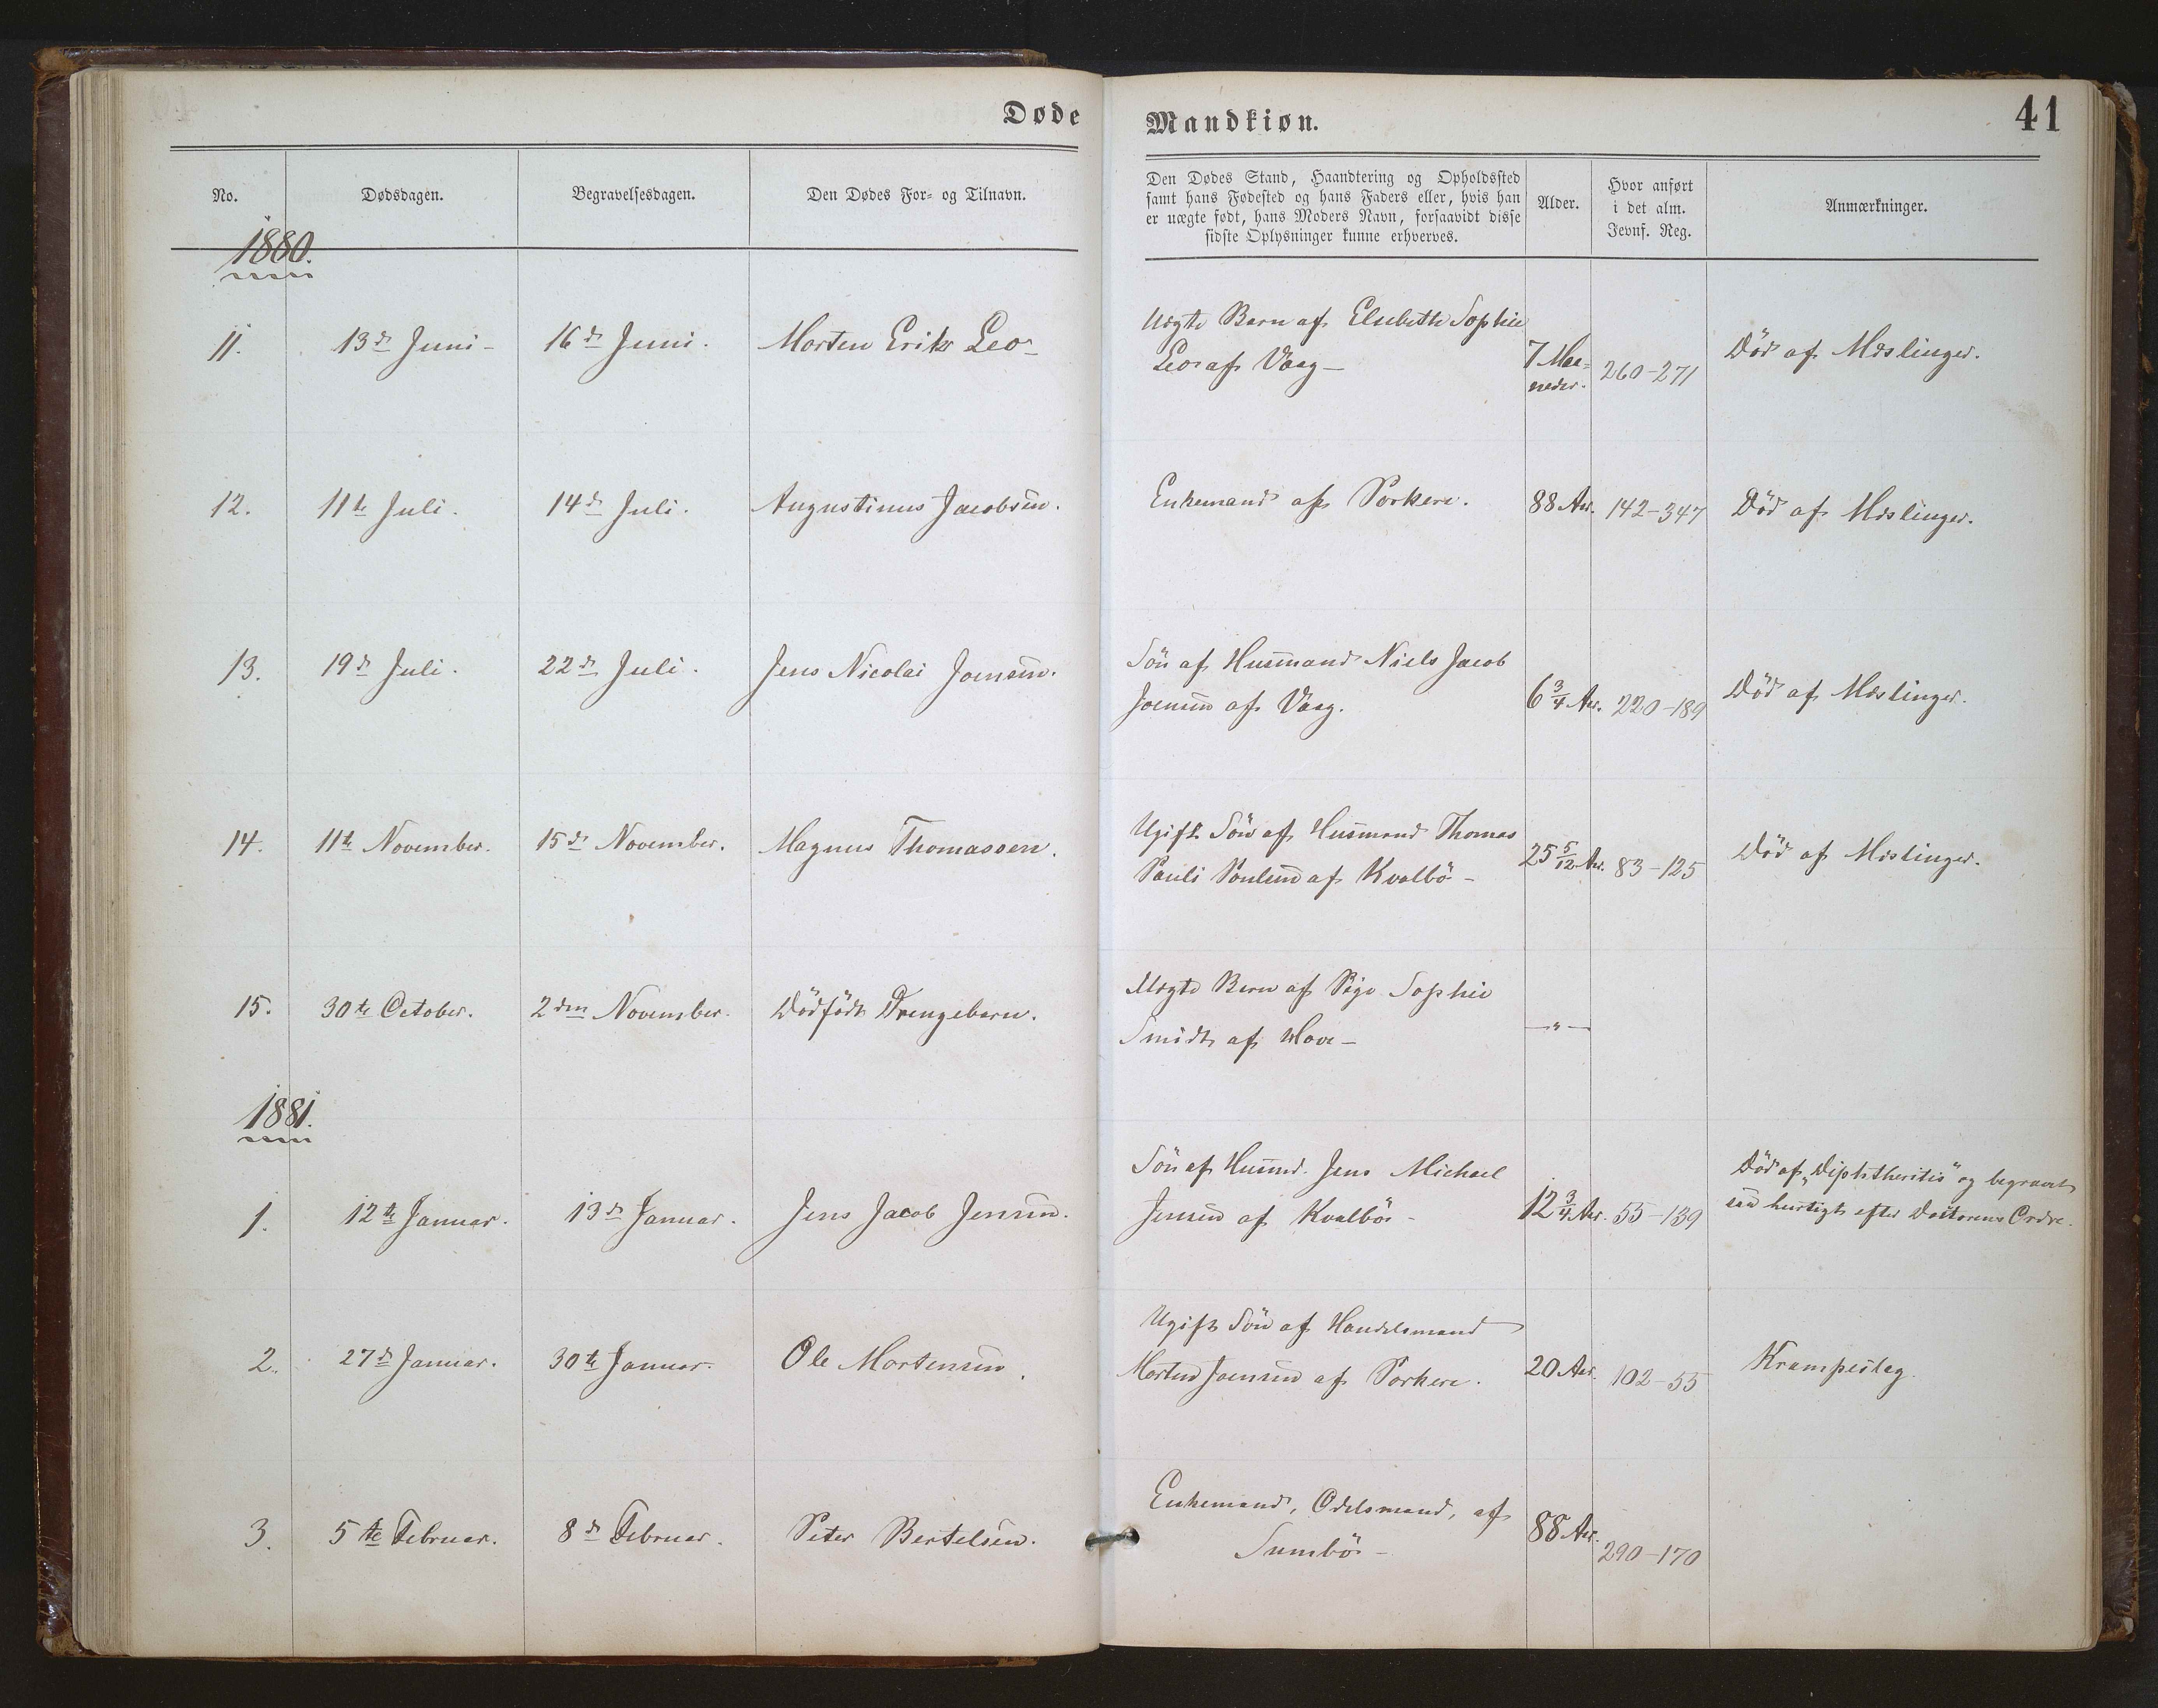 Døde
Mandkiøn.
41
No.
Dødsdagen.
Begravelsesdagen.
Den Dødes For- og Tilnavn.
Den Dødes Stand, Haandtering og Opholdssted
samt hans Fødested og hans Faders eller, hvis han
er uægte født, hans Moders Navn, forsaavidt disse
sidste Oplysninger kunne erhverves.
Alder.
Hvor anført
i det alm.
Jevnf. Reg.
Anmærkninger.
1880.
11.
13de Juni -
16de Juni.
Morten Erik Leo -
Uægte Barn af Elsebeth Sophie
Leo af Vaag -
7 Maa-
neder.
260-271
Död af Mæslinger.
12.
11te Juli.
14de Juli.
Augustinus Jacobsen.
Enkemand af Porkere.
88 Aar.
142-347
Död af Mæslinger.
13.
19de Juli.
22de Juli.
Jens Nicolai Joensen.
Sön af Huusmand Niels Jacob
Joensen af Vaag.
6 3/4 Aar.
220-189
Död af Mæslinger.
14.
11te November.
15de November.
Magnus Thomassen.
Ugift Sön af Huusmand Thomas
Pauli Poulsen af Kvalbö -
25 5/12 Aar.
83-125
Död af Mæslinger.
15.
30te October.
2den November.
Dödfödt Drengebarn.
Uægte Barn af Pige Sophie
Smidt af Hove -
-"-
1881.
1.
12te Januar.
13de Januar.
Jens Jacob Jensen.
Sön af Huusmd. Jens Michael
Jensen af Kvalbö -
12 3/4 Aar.
55-139
Död af „Diphtheritis" og begravet
saa hurtigt efter Doctorens Ordre.
2.
27de Januar.
30te Januar.
Ole Mortensen.
Ugift Sön af Handelsmand
Morten Joensen af Porkere.
20 Aar.
102-55
Krampeslag.
3.
5te Februar.
8de Februar.
Peter Bertelsen.
Enkemand, Odelsmand, af
Sumbö -
88 Aar.
290-170